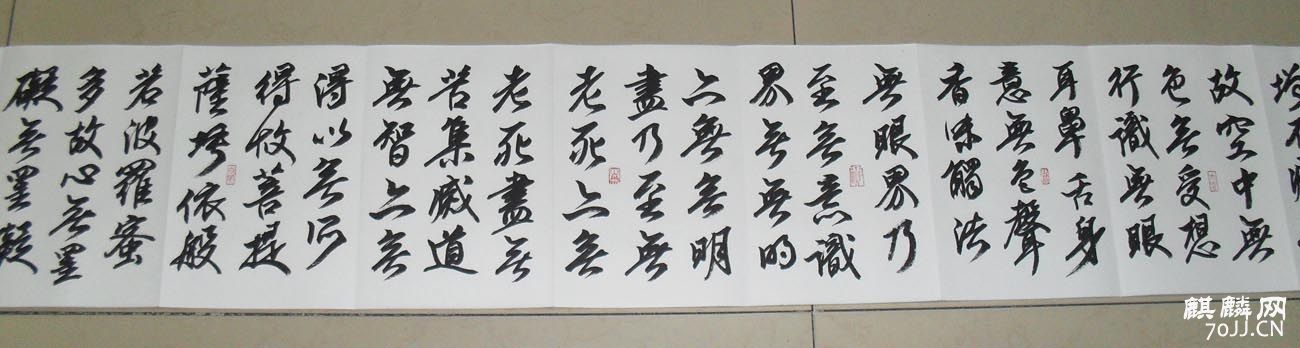 增不
故空中無
色無受想
行識無眼
耳鼻舌身
意無色聲
香味觸法
無眼界乃
至無意識
界無無明
亦無無明
盡乃至無
老死亦無
老死盡無
苦集滅道
無智亦無
得以無所
得故菩提
薩埵依般
若波羅蜜
多故心無罣
礙無罣礙
麒麟网
70JJ.CN